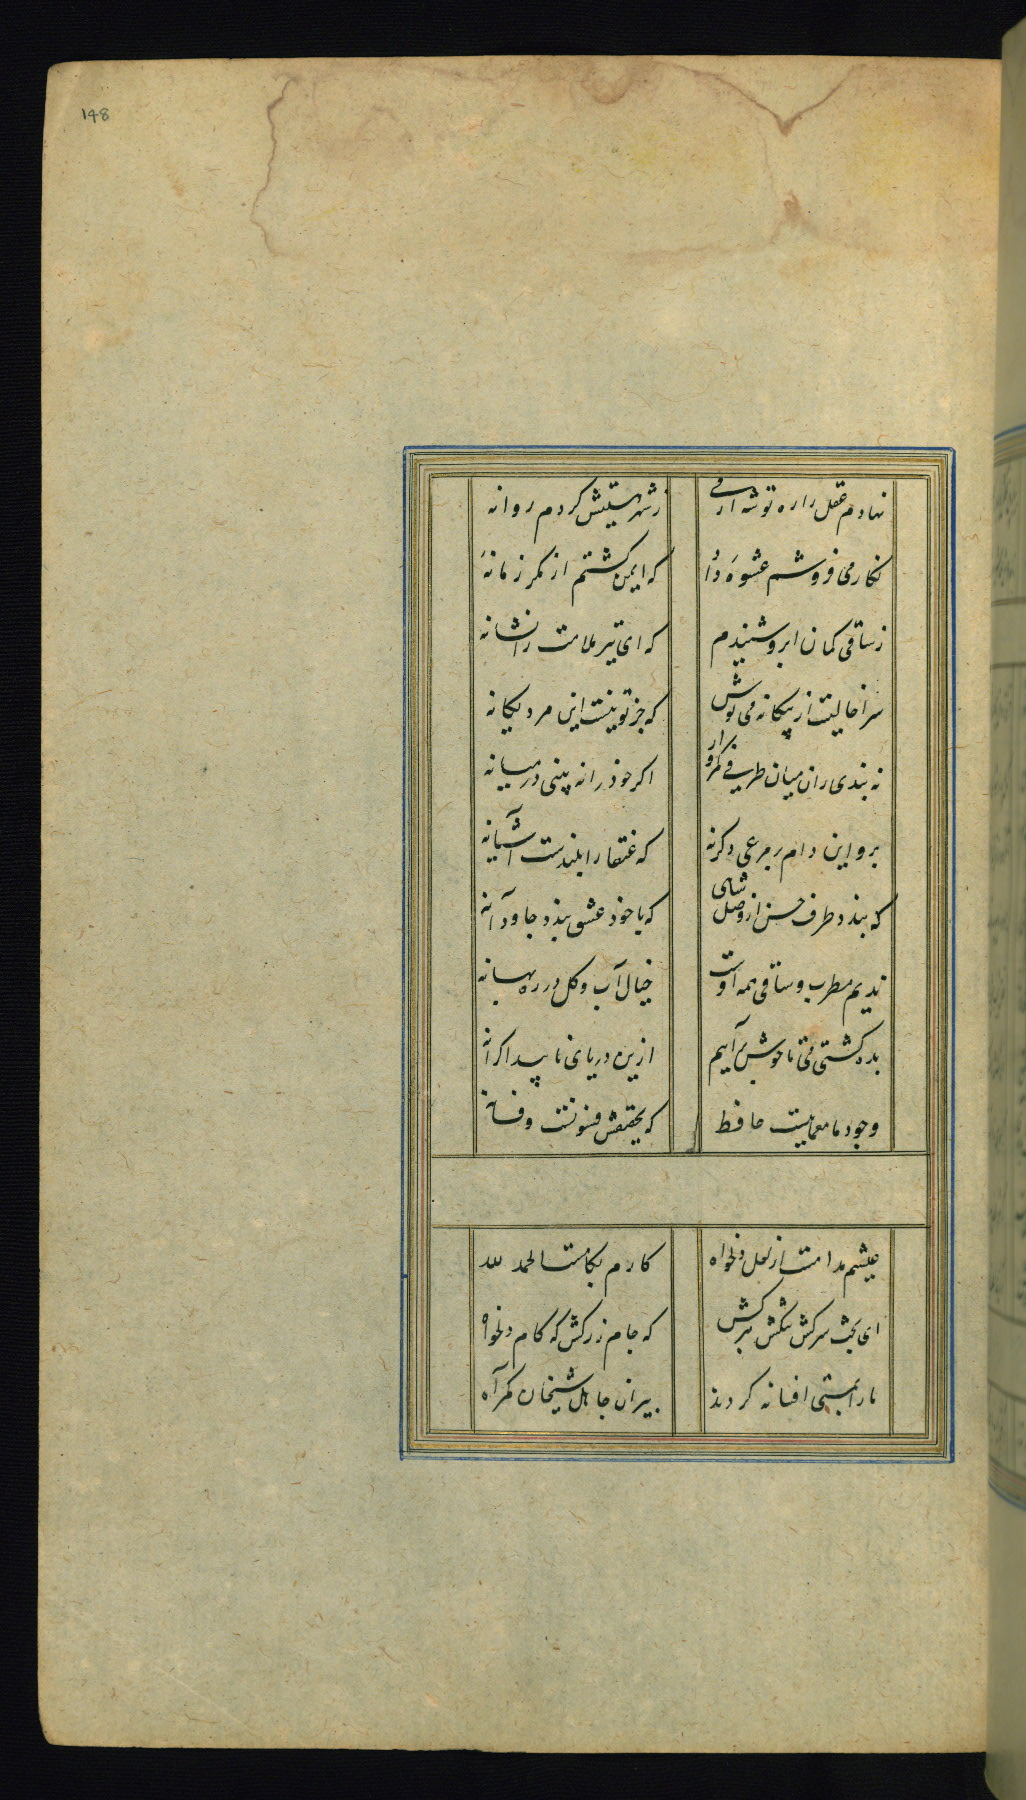 148
نهادم عقل را ره توشه از می
ز شهر هستیش کردم روانه
نگار می فروشم عشوهٔ داد
که ایمن گشتم از مکر زمانه
ز ساقی کمان ابرو شنیدم
که ای تیر ملامت را نشانه
سرا خالیست از بیگانه می نوش
که جز تو نیست این مرد یگانه
نه بندی زان میان طرفی کمروار
اگر خود را نه بینی در میانه
برو این دام بر مرغی دگر نه
که عنقا را بلندست آشیانه
که بندد طرف حسن از وصل شاهی
که با خود عشق بندد جاودانه
ندیم مطرب و ساقی همه اوست
خیال آب و گل در ره بهانه
بده کشتی می تا خوش بر آییم
ازین دریای ناپیدا کرانه
وجود ما معماییست حافظ
که تحقیقش فسونست و فسانه
عیشم مدامست از لعل دلخواه
کارم بکامست الحمد لله
ای بخت سرکش تنگش ببر کش
که جام زر کش که کام دلخواه
ما را بمستی افسانه کردند
پیران جاهل شیخان گمراه